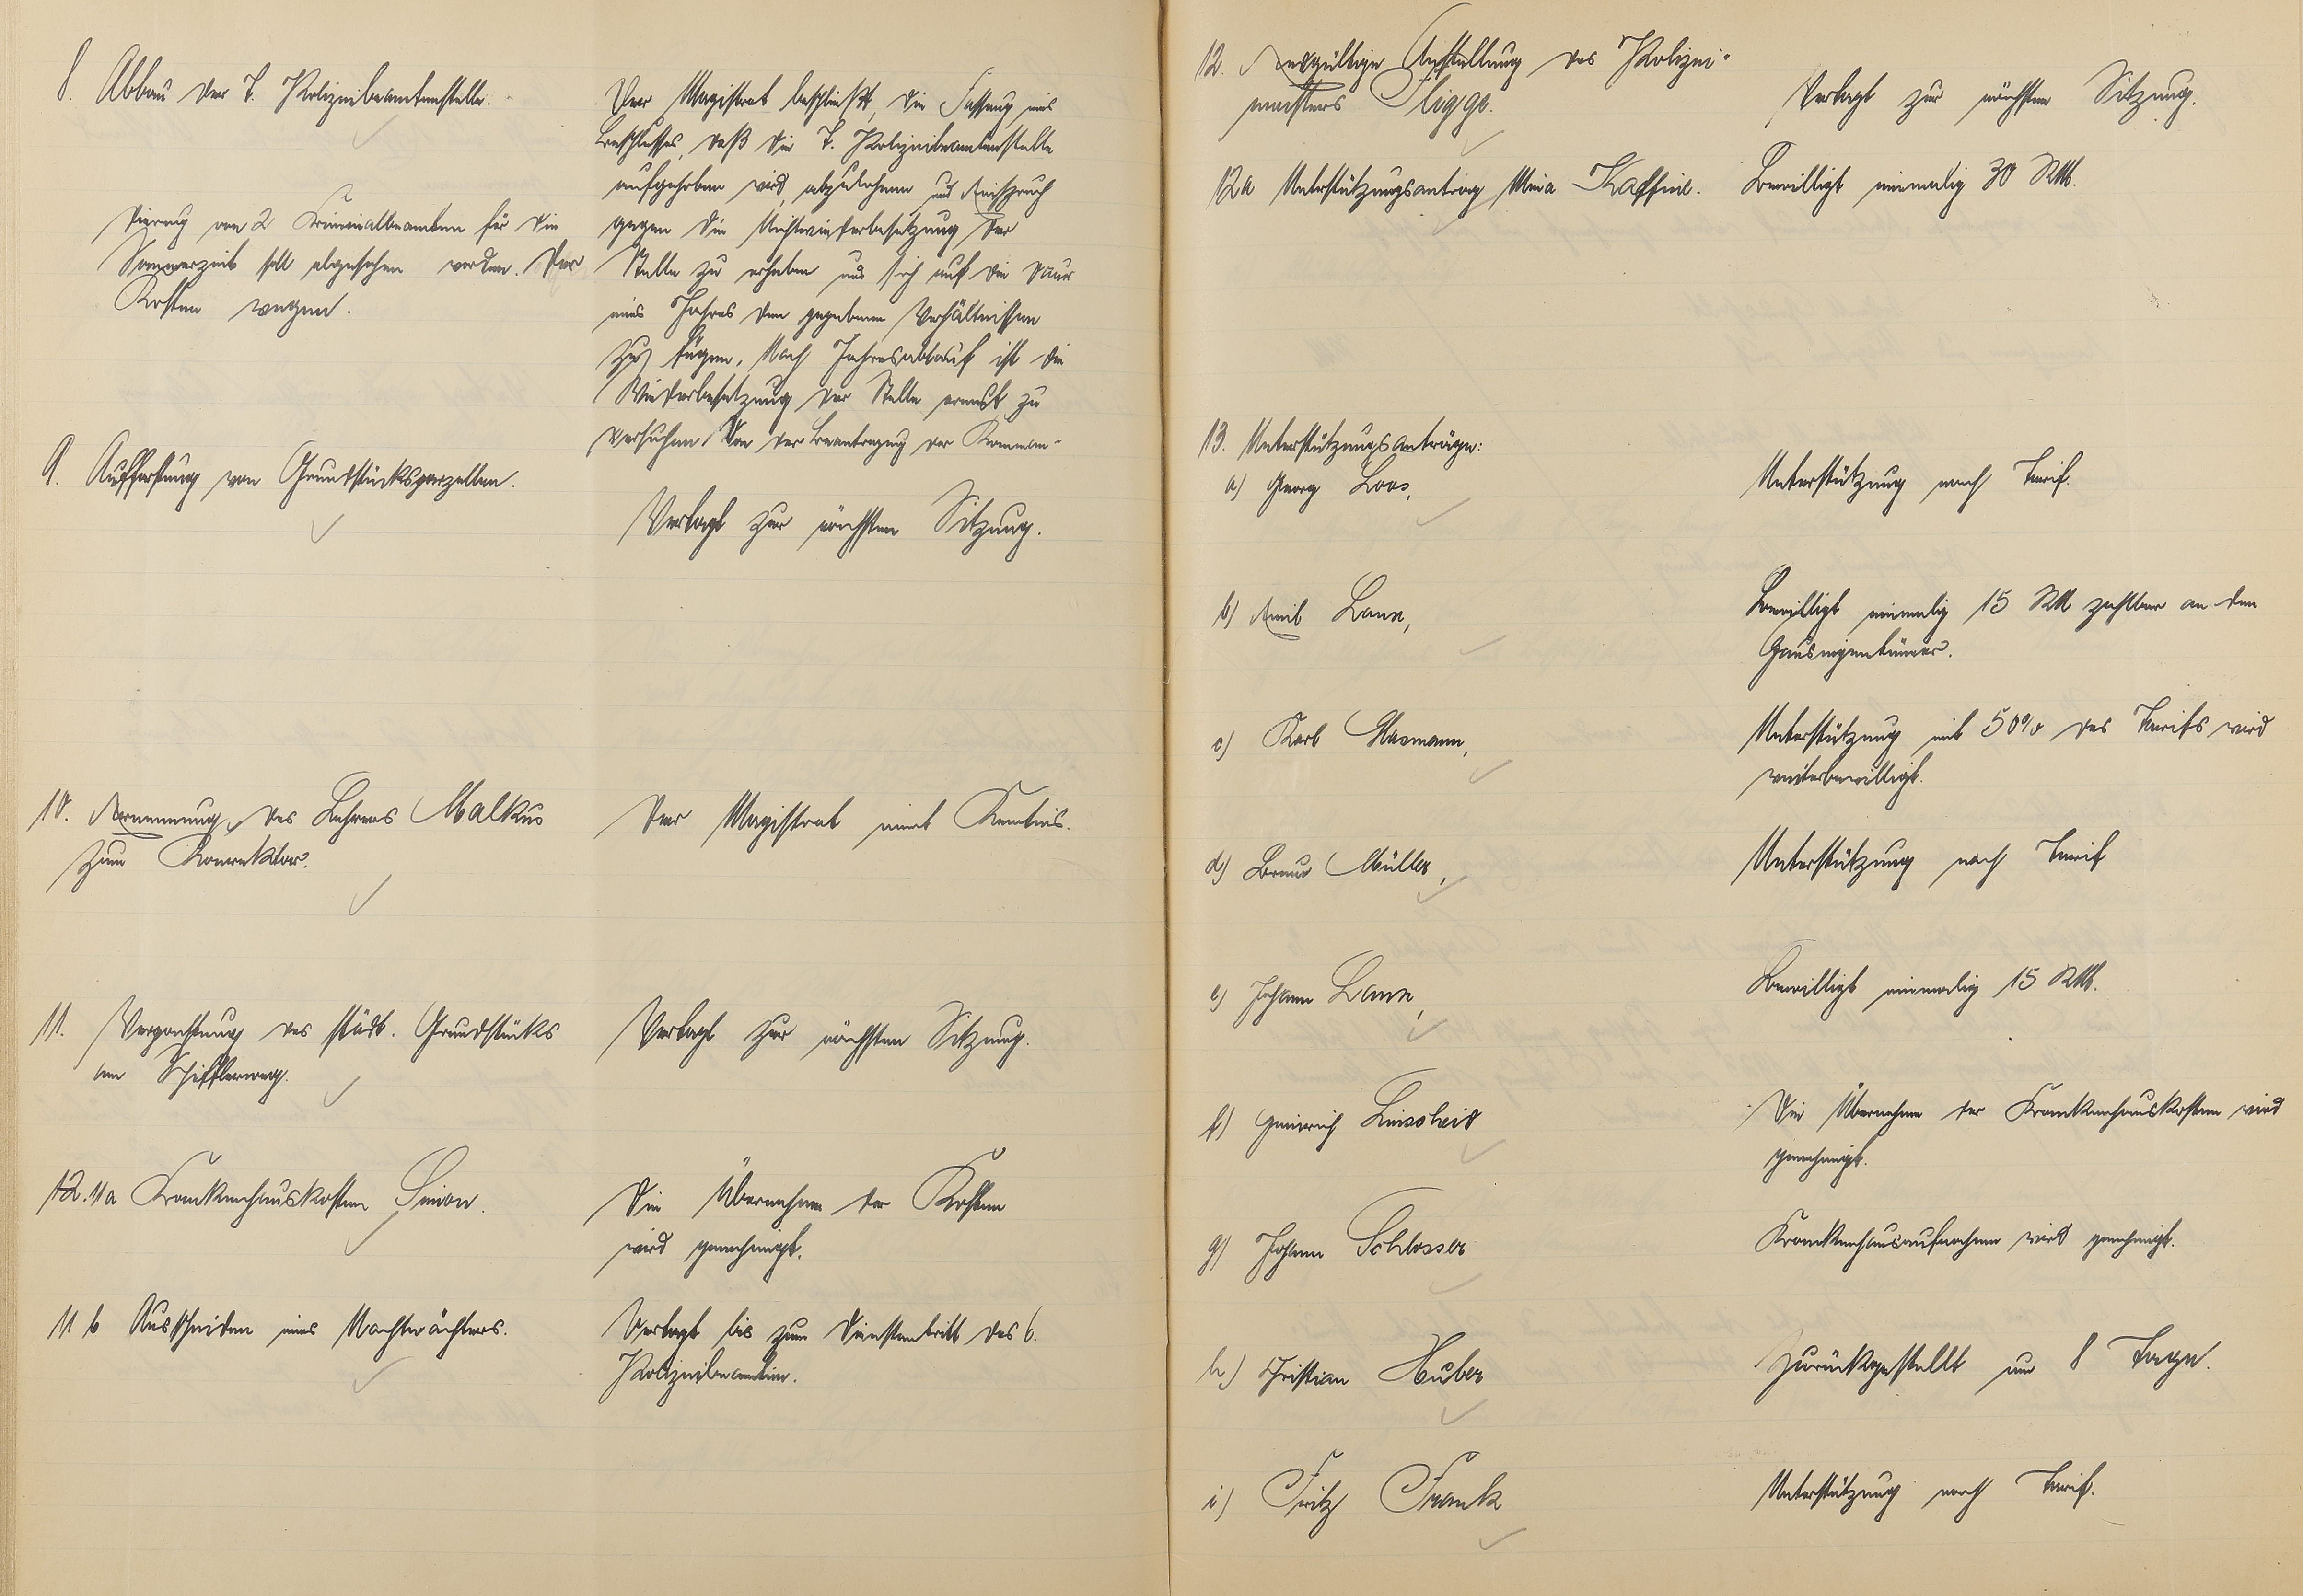 8. Abbau der 7. Polizeibeamtenstelle.
Der Magistrat beschließt, die Fassung eines
Beschlusses, daß die 7. Polizeibeamtenstelle
aufgehoben wird, abzulehnen und Einspruch
gegen die Nichtwiederbesetzung der
Stelle zu erheben und sich auf die Dauer
eines Jahres den gegebenen Verhältnissen
zu fügen. Nach Jahresablauf ist die
Wiederbesetzung der Stelle erneut zu
versuchen. Von der Beantragung der Komman-
dierung von 2 Kriminalbeamten für die
Sommerzeit soll abgesehen werden. Der
Kosten wegen.
9. Aufforstung von Grundstücksparzellen.
Vertagt zur nächsten Sitzung.
10. Ernennung des Lehrers Malkus
zum Konrektor.
Der Magistrat nimt Kentnis.
11. Verpachtung des städt. Grundstücks
am Schifflerweg.
Vertagt zur nächsten Sitzung.
12. 11a Krankenhauskosten Simon.
Die Übernahme der Kosten
wird genehmigt.
11 b Ausscheiden eines Nachtwächters.
Vertagt bis zum Dienstantritt des 6.
Polizeibeamten.
12. Endgültige Anstellung des Polizei-
meisters Fligge.
Vertagt zur nächsten Sitzung.
12a Unterstützungsantrag Mina Kaffine.
Bewilligt einmalig 30 RM.
13. Unterstützungsanträge:
a) Georg Loos,
Unterstützung nach Tarif.
b) Emil Laux,
Bewilligt einmalig 15 RM zahlbar an den
Hauseigentümer.
c) Karl Glasmann,
Unterstützung mit 50% des Tarifs wird
weiterbewilligt.
d) Bruno Müller,
Unterstützung nach Tarif
e) Johann Laux,
Bewilligt einmalig 15 RM.
f) Heinrich Linscheid
Die Übernahme der Krankenhauskosten wird
genehmigt.
g) Johann Schlosser
Krankenhausaufnahme wird genehmigt.
h) Christian Huber
Zurückgestellt um 8 Tage.
i) Fritz Frank
Unterstützung nach Tarif.